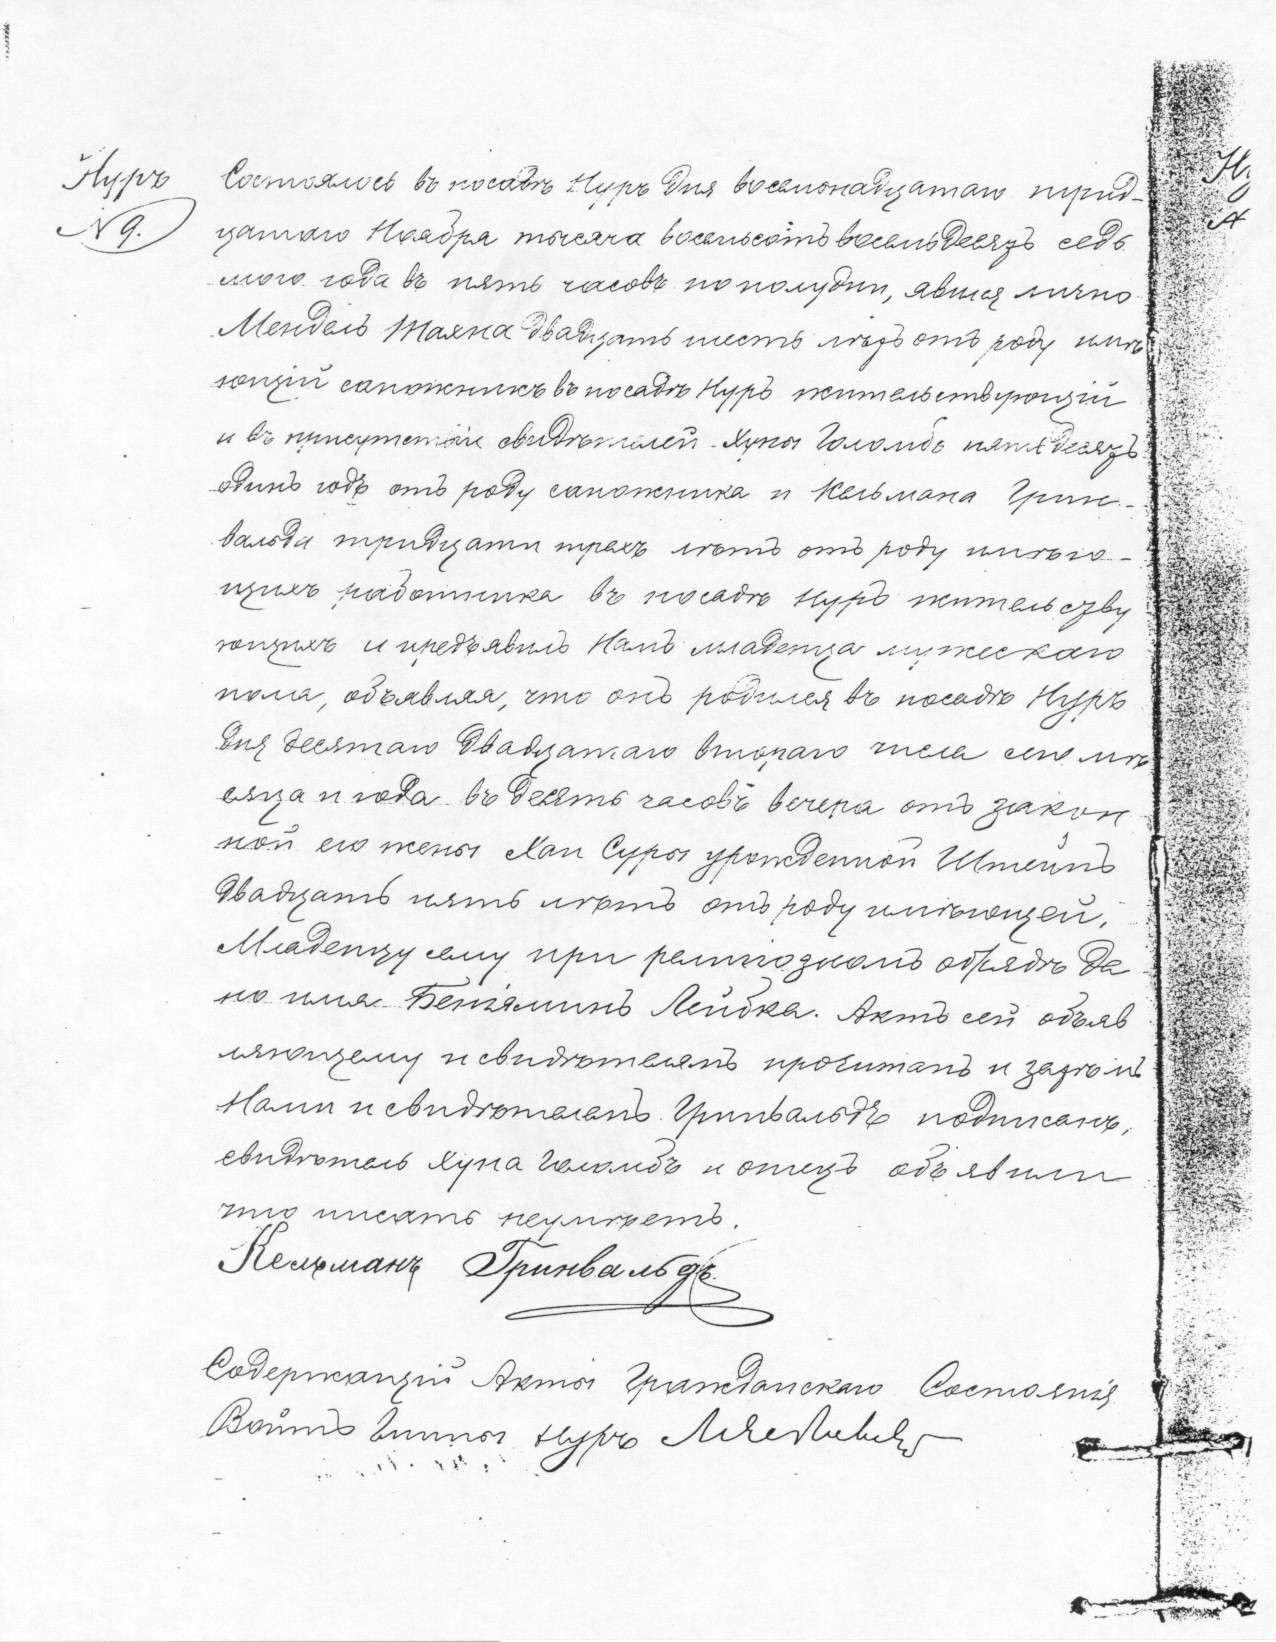 Нуръ
№ 9.
Состоялось въ посадѣ Нуръ дня восемонадцатаго трид-
цатаго Ноября тысяча восемьсотъ восемьдесязъ седь
мого года въ пять часовъ по полудни, явился лично
Мендель двадцать шесть лѣтъ отъ роду имѣ
ющій сапожникъ въ посадѣ Нуръ жительствующій
и въ присутствіи свидѣтелей Хуны Голомбъ пятьдесязъ
одинъ годъ отъ роду сапожника и Кельмана Грин-
вальда тридцати трехъ лѣтъ отъ роду имѣю-
щихъ работника въ посадѣ Нуръ жительству
ющихъ и предъявилъ Намъ младенца мужескаго
пола, объявляя, что онъ родился въ посадѣ Нуръ
дня десятаго двадцатаго втораго числа сего мѣ
сяца и года въ десять часовъ вечера отъ закон
ной его жены Хаи Суры урожденной Штейнъ
двадцать пять лѣтъ отъ роду имѣющей.
Младенцу сему при религіозномъ обрядѣ да
но имя Беніяминъ Лейбка. Актъ сей объяв
ляющему и свидѣтелямъ прочитанъ и затѣмъ
Нами и свидѣтелемъ Гринвальдъ подписанъ,
свидѣтель Хуна Голомбъ и отецъ объявили
что писать неумѣетъ.
Кельманъ Гринвальдъ
Содержащій Акты Гражданскаго Состоянія
Войтъ Гмины Нуръ